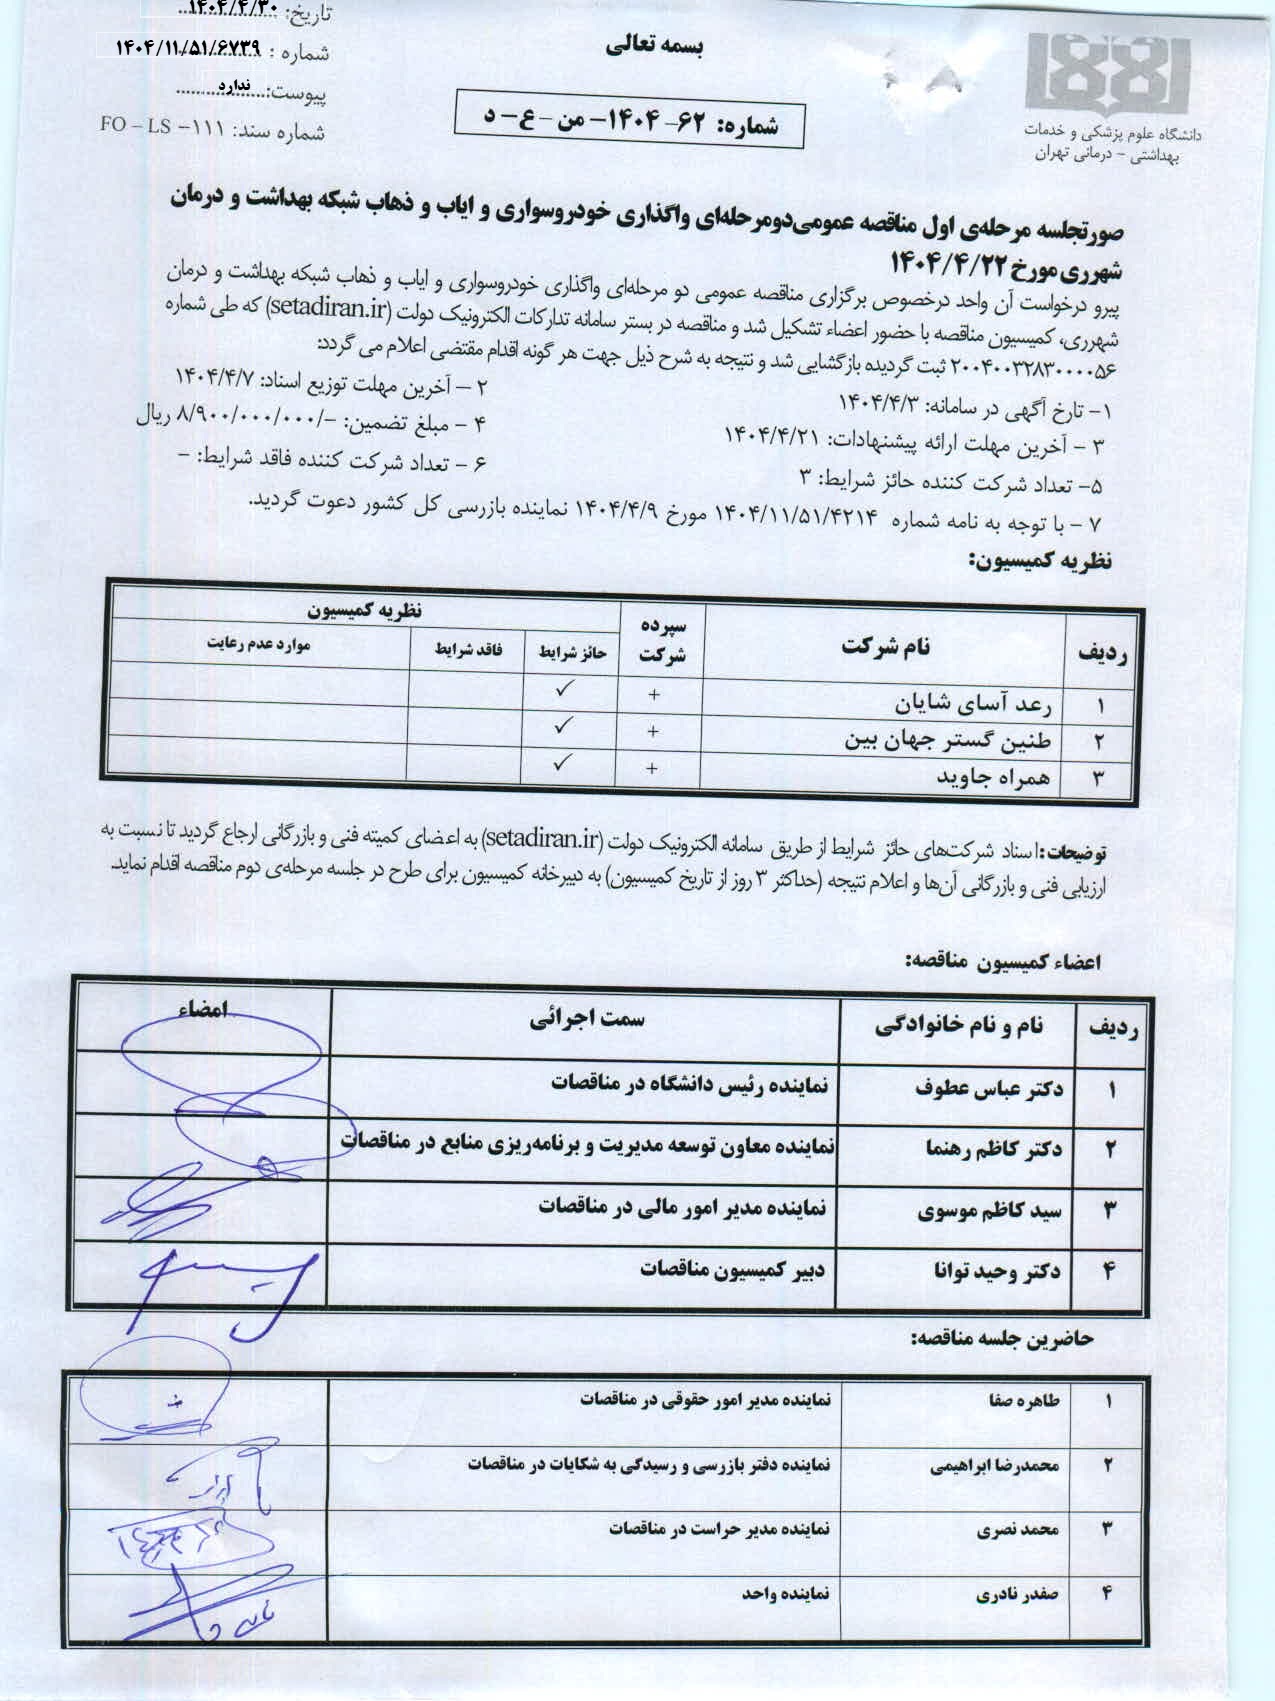 تاریخ: ۱۴۰۴/۴/۳۰
شماره : ۱۴۰۴/۱۱/۵۱/۶۷۳۹
پیوست: ندارد
شماره سند: FO – LS –۱۱۱
بسمه تعالی
شماره: ۶۲- ۱۴۰۴- من – ع- د
دانشگاه علوم پزشکی و خدمات
بهداشتی – درمانی تهران
صورتجلسه مرحله‌ی اول مناقصه عمومی‌دومرحله‌ای واگذاری خودروسواری و ایاب و ذهاب شبکه بهداشت و درمان
شهرری مورخ ۱۴۰۴/۴/۲۲
پیرو درخواست آن واحد درخصوص برگزاری مناقصه عمومی دو مرحله‌ای واگذاری خودروسواری و ایاب و ذهاب شبکه بهداشت و درمان
شهرری، کمیسیون مناقصه با حضور اعضاء تشکیل شد و مناقصه در بستر سامانه تدارکات الکترونیک دولت (setadiran.ir) که طی شماره
۲۰۰۴۰۰۳۲۸۳۰۰۰۰۵۶ ثبت گردیده بازگشایی شد و نتیجه به شرح ذیل جهت هر گونه اقدام مقتضی اعلام می گردد:
۱- تارخ آگهی در سامانه: ۱۴۰۴/۴/۳
۲ – آخرین مهلت توزیع اسناد: ۱۴۰۴/۴/۷
۳ – آخرین مهلت ارائه پیشنهادات: ۱۴۰۴/۴/۲۱
۴ – مبلغ تضمین: -/۸/۹۰۰/۰۰۰/۰۰۰ ریال
۵- تعداد شرکت کننده حائز شرایط: ۳
۶ – تعداد شرکت کننده فاقد شرایط: –
۷ – با توجه به نامه شماره ۱۴۰۴/۱۱/۵۱/۴۲۱۴ مورخ ۱۴۰۴/۴/۹ نماینده بازرسی کل کشور دعوت گردید.
نظریه کمیسیون:
ردیف نام شرکت سپرده شرکت نظریه کمیسیون
حائز شرایط فاقد شرایط موارد عدم رعایت
۱ رعد آسای شایان + ✓
۲ طنین گستر جهان بین + ✓
۳ همراه جاوید + ✓
توضیحات: اسناد شرکت‌های حائز شرایط از طریق سامانه الکترونیک دولت (setadiran.ir) به اعضای کمیته فنی و بازرگانی ارجاع گردید تا نسبت به
ارزیابی فنی و بازرگانی آن‌ها و اعلام نتیجه (حداکثر ۳ روز از تاریخ کمیسیون) به دبیرخانه کمیسیون برای طرح در جلسه مرحله‌ی دوم مناقصه اقدام نماید.
اعضاء کمیسیون مناقصه:
ردیف نام و نام خانوادگی سمت اجرائی امضاء
۱ دکتر عباس عطوف نماینده رئیس دانشگاه در مناقصات
۲ دکتر کاظم رهنما نماینده معاون توسعه مدیریت و برنامه‌ریزی منابع در مناقصات
۳ سید کاظم موسوی نماینده مدیر امور مالی در مناقصات
۴ دکتر وحید توانا دبیر کمیسیون مناقصات
حاضرین جلسه مناقصه:
۱ طاهره صفا نماینده مدیر امور حقوقی در مناقصات
۲ محمدرضا ابراهیمی نماینده دفتر بازرسی و رسیدگی به شکایات در مناقصات
۳ محمد نصری نماینده مدیر حراست در مناقصات
۴ صفدر نادری نماینده واحد